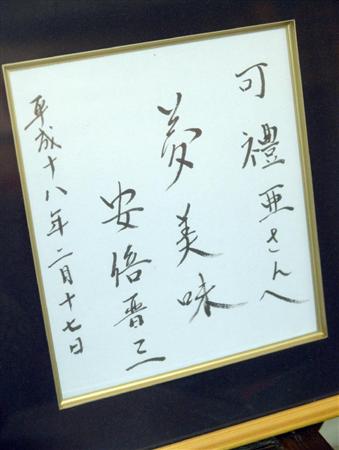 可禮亜さんへ
夢美味
安倍晋三
平成十八年二月十七日